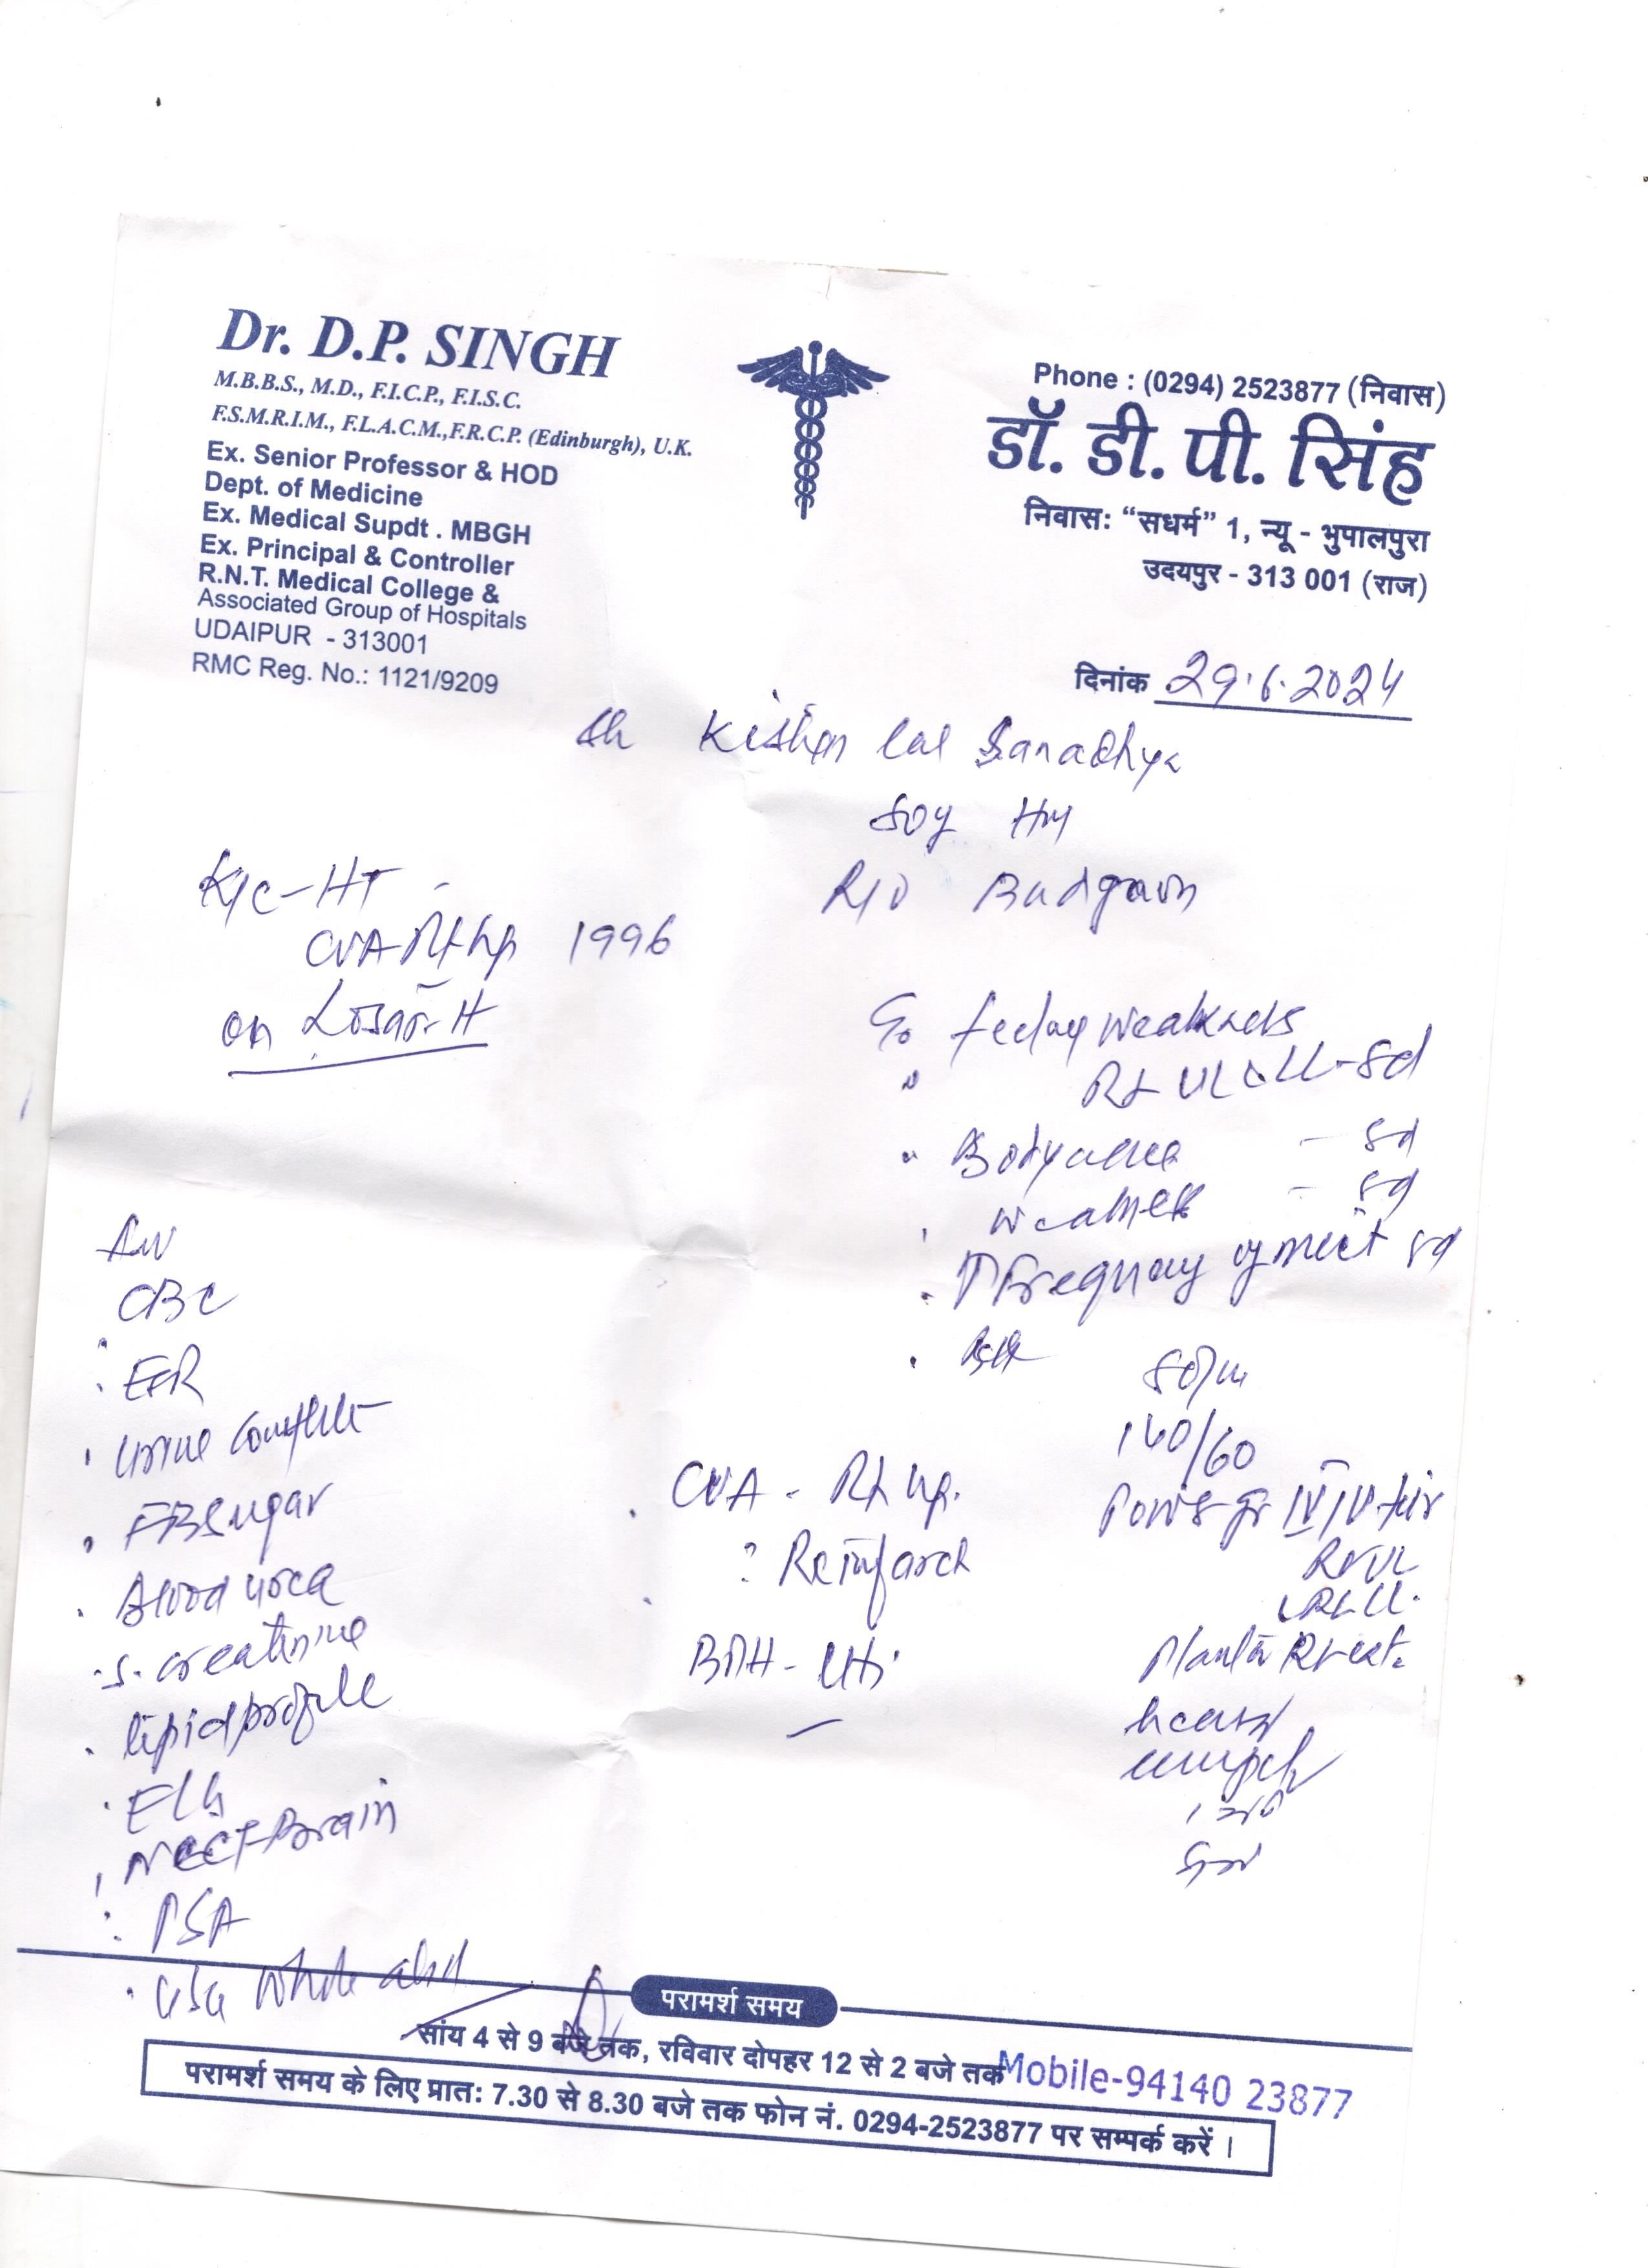 Dr. D.P. SINGH
M.B.B.S., M.D., F.I.C.P., F.I.S.C.
F.S.M.R.I.M., F.L.A.C.M.,F.R.C.P. (Edinburgh), U.K.
Ex. Senior Professor & HOD
Dept. of Medicine
Ex. Medical Supdt . MBGH
Ex. Principal & Controller
R.N.T. Medical College &
Associated Group of Hospitals
UDAIPUR - 313001
RMC Reg. No.: 1121/9209
Phone : (0294) 2523877 (निवास)
डॉ. डी. पी. सिंह
निवास: “सधर्म” 1, न्यू - भुपालपुरा
उदयपुर - 313 001 (राज)
दिनांक 29.6.2024
Sh Kishan Lal Sanadhya
80y
R/o Badgaon
K/c - HT -
CVA Rt hp 1996
on Losar-H
C/o feeling weakness
Rt UL & LL - 8d
Bodyache - 8d
weakness - 8d
↑ Frequency of mict 8d
80/m
140/60
Power gr IV/IV
Rt UL
Rt LL
Plantar Rt ext.
CVA - Rt hp.
? Reinfarct
BPH - UTI
Adv
CBC
ESR
Urine complete
FBSugar
Blood urea
S. creatinine
lipid profile
ECG
NCCT Brain
PSA
USG Whole abd
परामर्श समय
सांय 4 से 9 बजे तक, रविवार दोपहर 12 से 2 बजे तक
Mobile-94140 23877
परामर्श समय के लिए प्रात: 7.30 से 8.30 बजे तक फोन नं. 0294-2523877 पर सम्पर्क करें ।